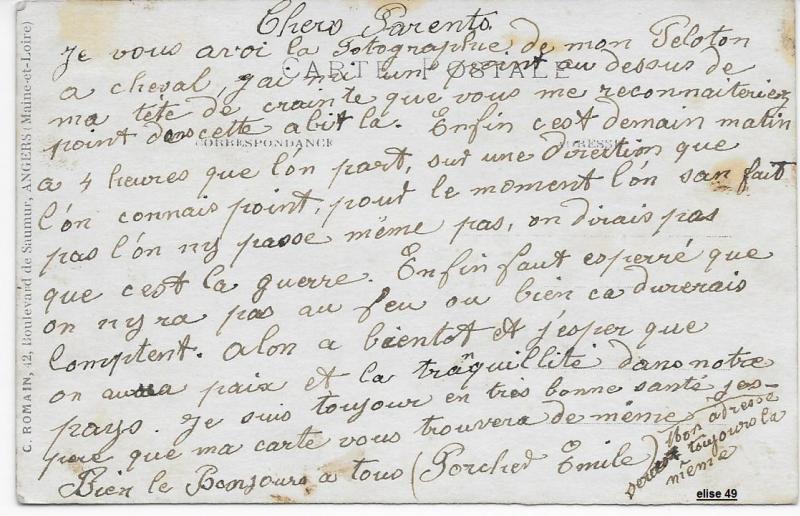 Chers Parents
je vous avoi la Fotographie de mon Peloton
CARTE POSTALE
a cheval, j'ai mi un point au dessus de
ma tête de crainte que vous me reconnaiteriez
point dans cette abit la. Enfin c'est demain matin
CORRESPONDANCE
ADRESSE
a 4 heures que l'on part, sur une direction que
l'on connais point, pour le moment l'on san fait
pas l'on ny passe même pas, on dirais pas
que c'est la guerre. Enfin faut esperré que
on nyra pas au feu ou bien ca durerais
Comptent. alon a bientot et j'esper que
on aura paix et la tranquillité dans notre
pays. Je suis toujour en très bonne santé jes-
pere que ma carte vous trouvera de même
Bien le Bonjours a tous (Porcher Emile)
Mon adresse
toujours la
même
C. ROMAIN, 42, Boulevard de Saumur, ANGERS (Maine-et-Loire)
elise 49